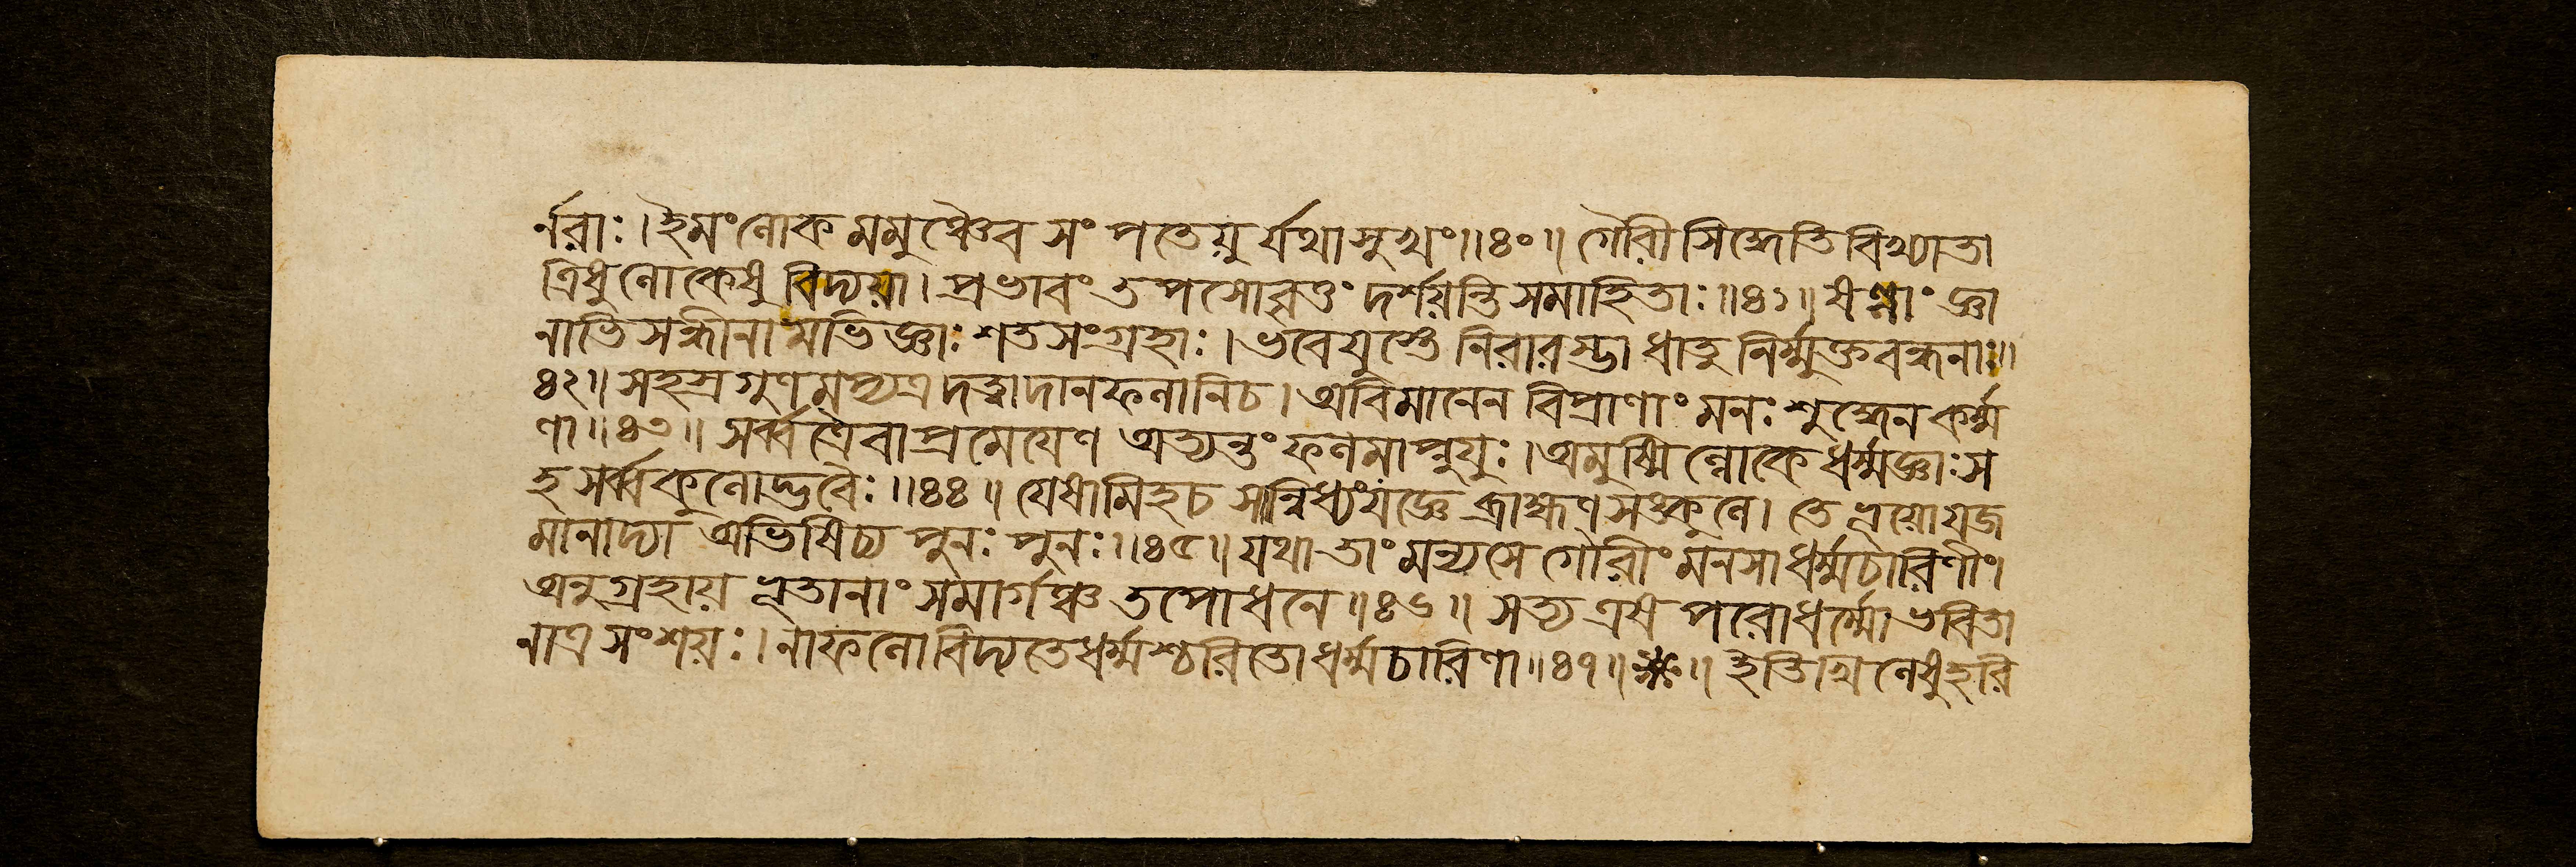 র্নরাঃ। ইমং লোকমমুঞ্চৈব সংপতেয়ুর্যথাসুখং॥৪০॥ গৌরী সিদ্ধেতি বিখ্যাতা
ত্রিষু লোকেষু বিদ্যয়া। প্রভাবং তপসো দর্শয়ন্তি সমাহিতাঃ॥৪১॥ জ্ঞা
নাতিসন্ধীনামভিজ্ঞাঃ শতসংগ্রহাঃ। ভবেয়ুস্তে নিরারম্ভা ধাতুনির্ম্মুক্তবন্ধনাঃ॥
৪২॥ সহস্রগুণমপ্যত্র দত্ত্বা দানফলানি চ। অবিমানেন বিপ্রাণাং মনঃশুদ্ধেন কর্ম্ম
ণা॥৪৩॥ সর্ব্বত্রৈবাপ্রমেয়েণ অত্যন্তং ফলমাপ্নুয়ুঃ। অমুষ্মিল্লোকে ধর্ম্মজ্ঞাঃ স
হ সর্ব্বকুলোদ্ভবৈঃ॥৪৪॥ যেষামিহ চ সান্নিধ্যং যজ্ঞে ব্রাহ্মণসঙ্কুলে। তে ভূয়ো যজ
মানাদ্যা অভিষিচ্য পুনঃ পুনঃ॥৪৫॥ যথা তাং মন্যসে গৌরীং মনসা ধর্ম্মচারিণীং।
অনুগ্রহায় ভূতানাং সমার্গঞ্চ তপোধনে॥৪৬॥ সত্য এষ পরো ধর্ম্মো ভবিতা
নাত্র সংশয়ঃ। নাফলো বিদ্যতে ধর্ম্মশ্চরিতো ধর্ম্মচারিণা॥৪৭॥ ॥ ইতি খিলেষু হরি